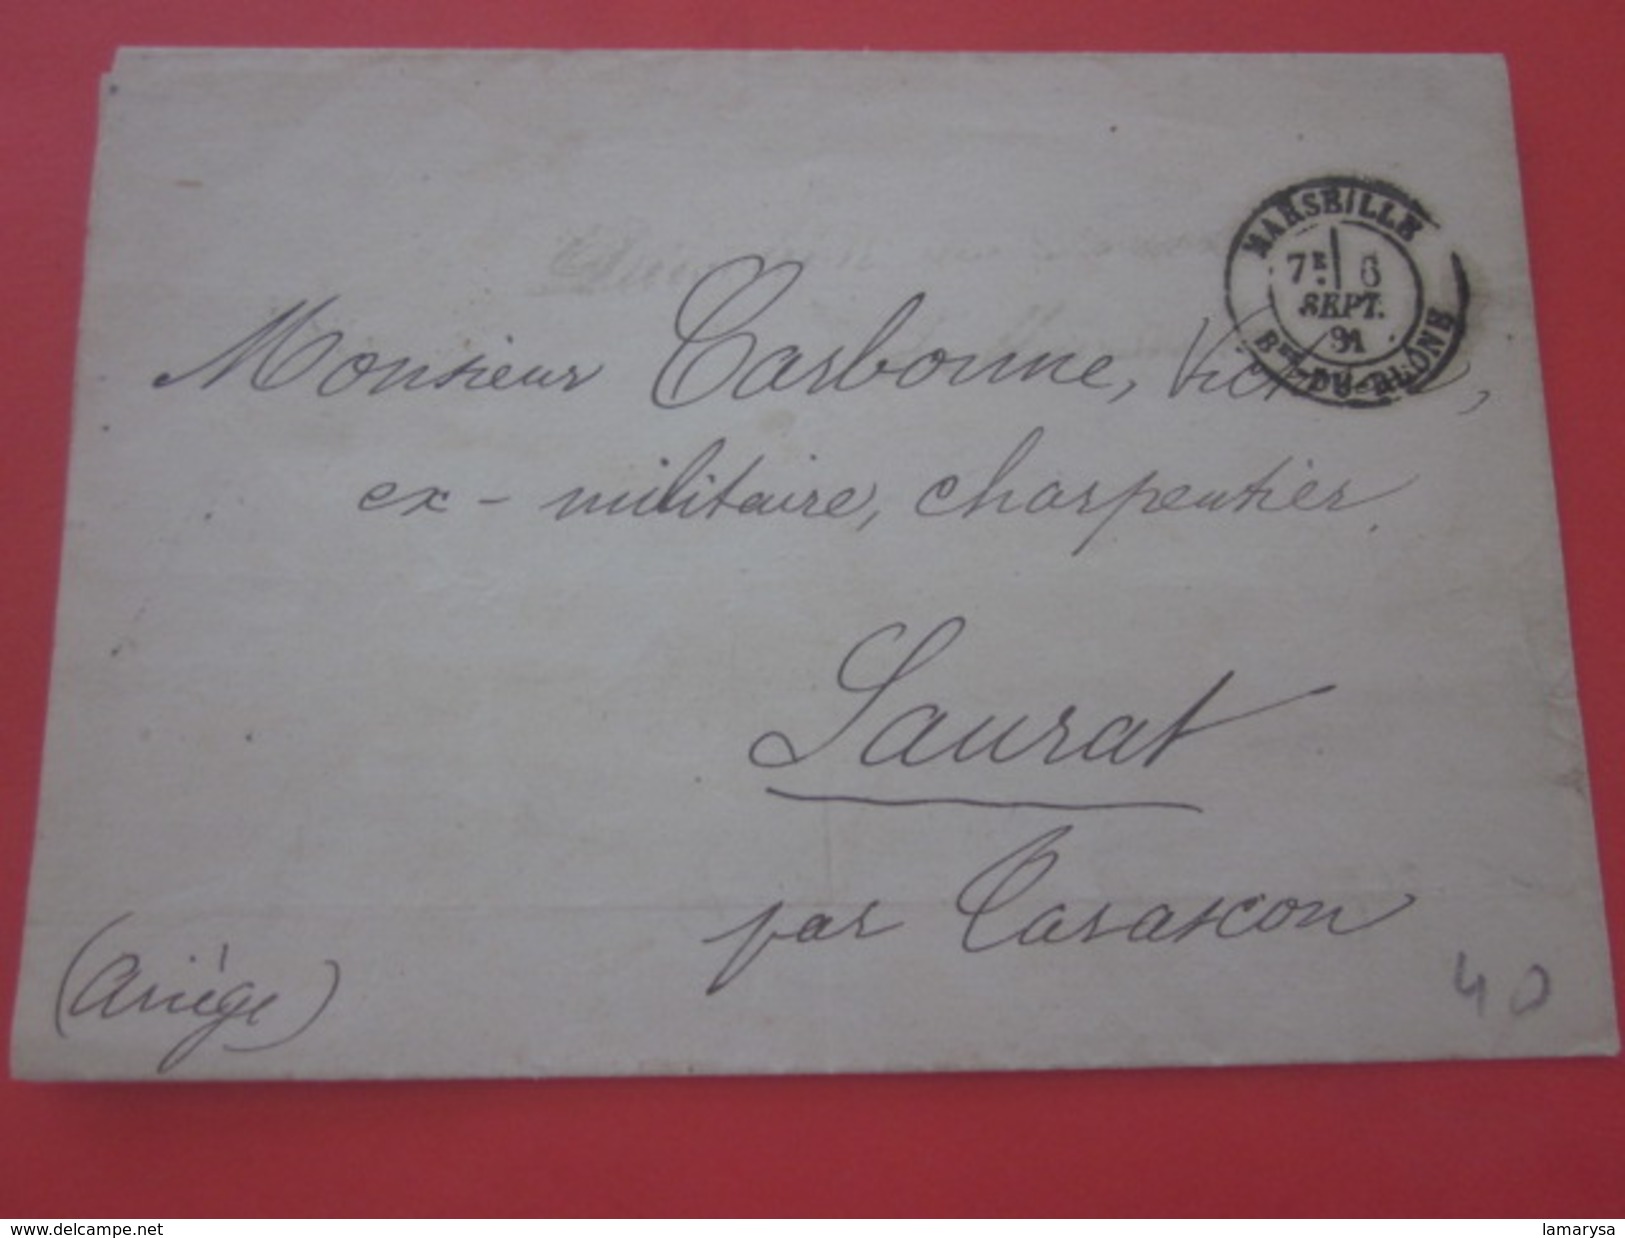 MARSEILLE
7E 6
SEPT.
91
BES-DU-RHÔNE
Monsieur Carbonne,
ex-militaire, charpentier.
Saurat
par Tarascon
(Ariège)
40
www.delcampe.net
lamarysa